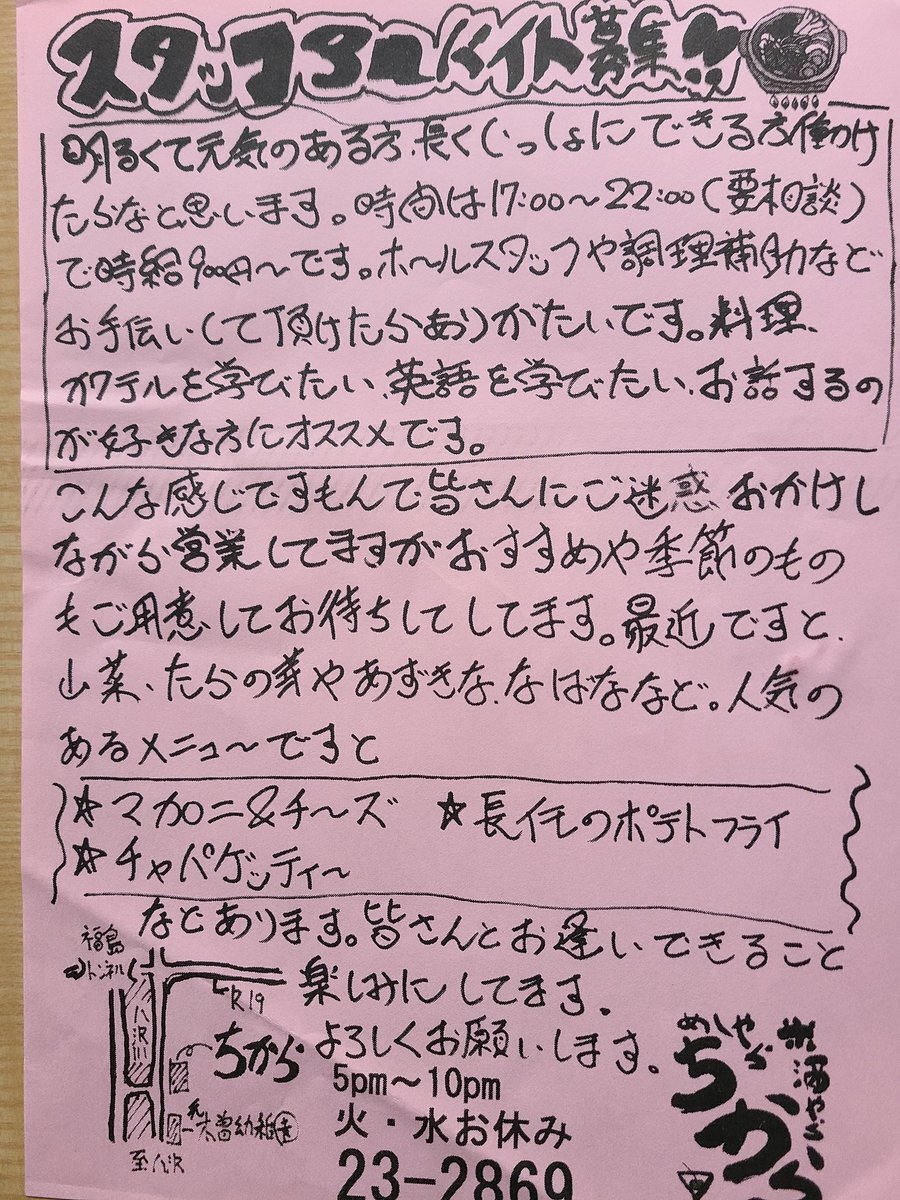 スタッフアルバイト募集!!
明るくて元気のある方、長くいっしょにできる方働け
たらなと思います。時間は17:00〜22:00(要相談)
で時給900円〜です。ホールスタッフや調理補助など
お手伝いして頂けたらありがたいです。料理、
カクテルを学びたい、英語を学びたい、お話するの
が好きな方にオススメです。
こんな感じですもんで皆さんにご迷惑おかけし
ながら営業してますがおすすめや季節のもの
もご用意してお待ちしてしてます。最近ですと、
山菜、たらの芽やあずきな、なばななど。人気の
あるメニュ〜ですと
☆マカロニ&チ〜ズ ☆長イモのポテトフライ
☆チャパゲッティ〜
などあります。皆さんとお逢いできること
楽しみにしてます。
よろしくお願いします。
5pm〜10pm
火・水お休み
23-2869
福島
トンネル
R19
八沢川
ちから
元木曽幼稚園
至八沢
めしやら
米酒やら
ちから